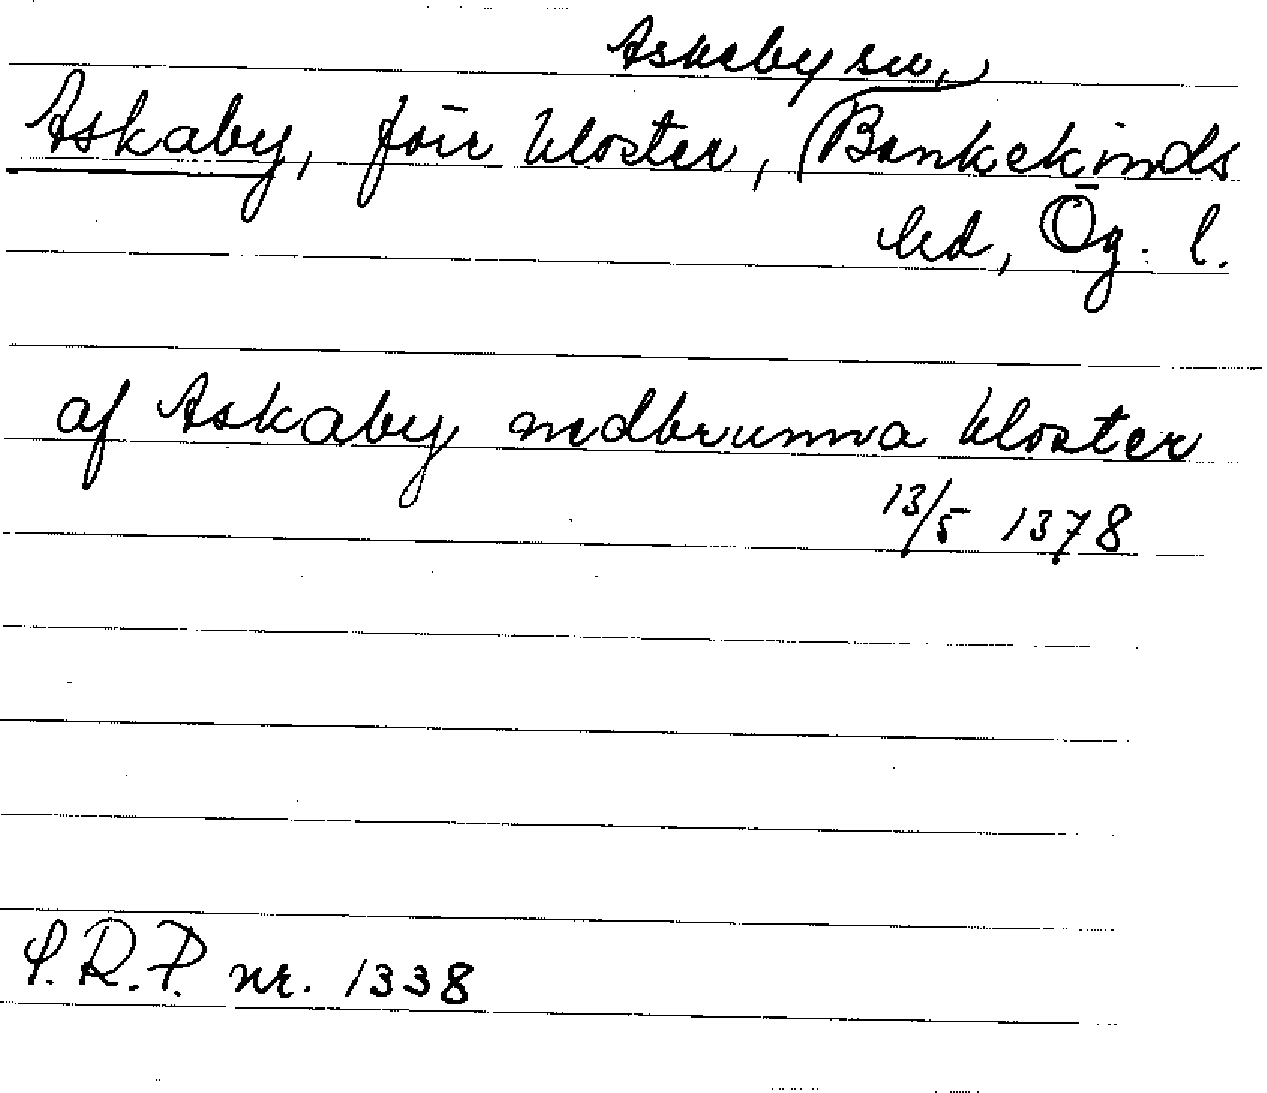 Askaby sn,
Askaby, förr kloster, Bankekinds
hd, Ög. l.
af Askaby nedbrunna kloster
13/5 1378
S.R.P. nr. 1338